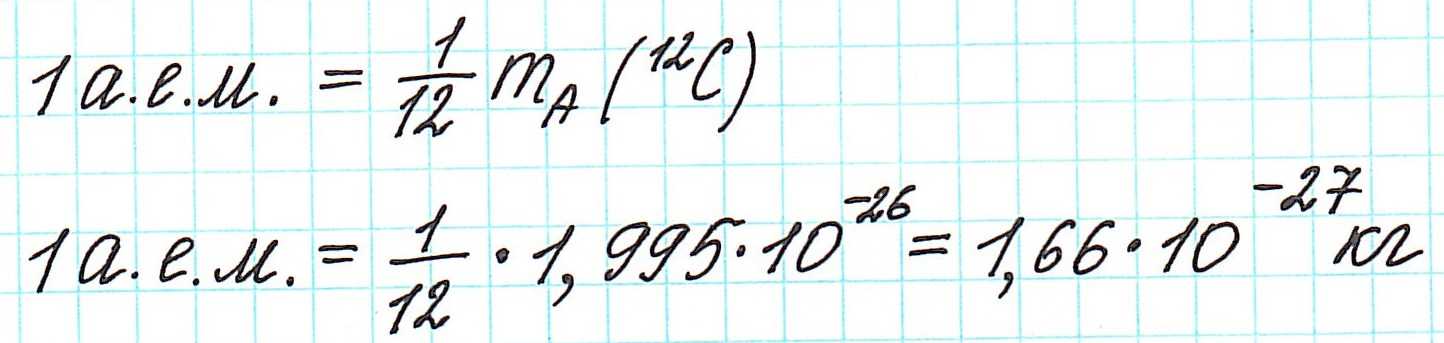 1 а.е.м. = 1/12 mA (¹²C)
1 а.е.м. = 1/12 · 1,995·10⁻²⁶ = 1,66·10⁻²⁷ кг